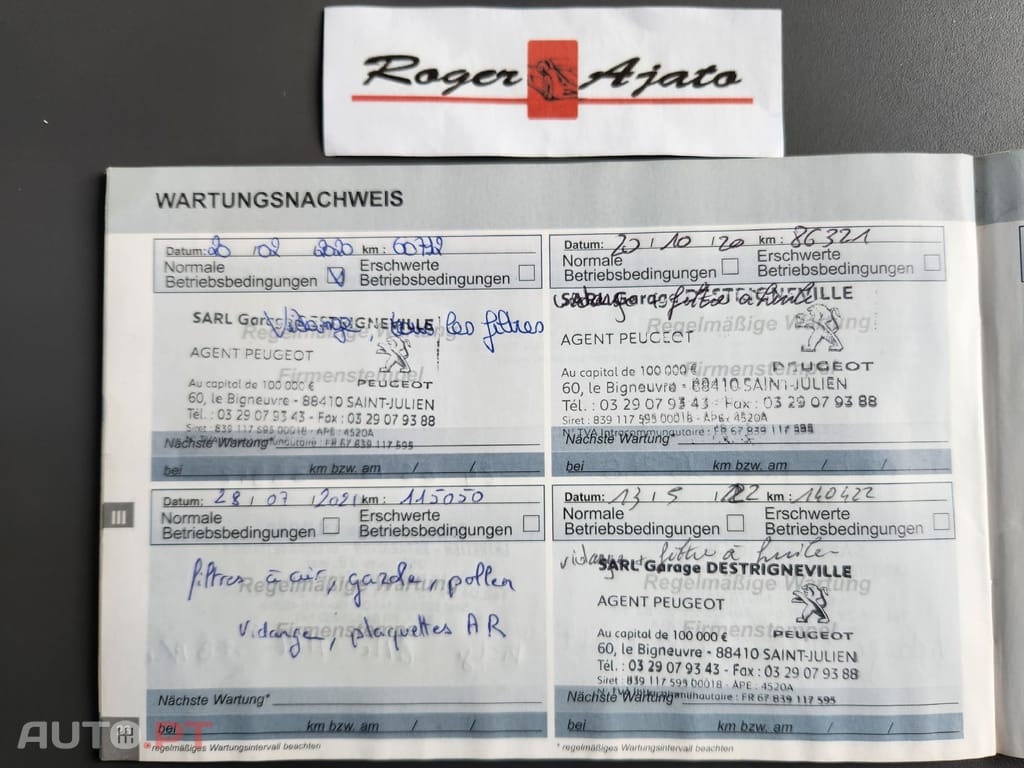 Roger Ajato
WARTUNGSNACHWEIS
Datum: 20 02 2020 km: 60712
Normale Betriebsbedingungen
Erschwerte Betriebsbedingungen
Vidange, tous les filtres
SARL Garage DESTRIGNEVILLE
Regelmäßige Wartung
AGENT PEUGEOT
Firmenstempel
Au capital de 100 000 € PEUGEOT
60, le Bigneuvre - 88410 SAINT-JULIEN
Tél. : 03 29 07 93 43 - Fax : 03 29 07 93 88
Siret : 839 117 595 00018 - APE : 4520A
N° TVA Intracommunautaire : FR 67 839 117 595
Nächste Wartung*
bei km bzw. am / /
Datum: 20 10 20 km: 86321
Normale Betriebsbedingungen
Erschwerte Betriebsbedingungen
vidange + filtre à huile
SARL Garage DESTRIGNEVILLE
Regelmäßige Wartung
AGENT PEUGEOT
Au capital de 100 000 € PEUGEOT
60, le Bigneuvre - 88410 SAINT-JULIEN
Tél. : 03 29 07 93 43 - Fax : 03 29 07 93 88
Siret : 839 117 595 00018 - APE : 4520A
N° TVA Intracommunautaire : FR 67 839 117 595
Nächste Wartung*
bei km bzw. am / /
III
Datum: 28 07 2021 km: 115050
Normale Betriebsbedingungen
Erschwerte Betriebsbedingungen
filtres à air, gazole, pollen
Regelmäßige Wartung
Vidange, plaquettes AR
Firmenstempel
Nächste Wartung*
bei km bzw. am / /
* regelmäßiges Wartungsintervall beachten
Datum: 13 5 22 km: 140422
Normale Betriebsbedingungen
Erschwerte Betriebsbedingungen
vidange + filtre à huile
SARL Garage DESTRIGNEVILLE
Regelmäßige Wartung
AGENT PEUGEOT
Firmenstempel
Au capital de 100 000 € PEUGEOT
60, le Bigneuvre - 88410 SAINT-JULIEN
Tél. : 03 29 07 93 43 - Fax : 03 29 07 93 88
Siret : 839 117 595 00018 - APE : 4520A
N° TVA Intracommunautaire : FR 67 839 117 595
Nächste Wartung*
bei km bzw. am / /
* regelmäßiges Wartungsintervall beachten
AUTO.PT